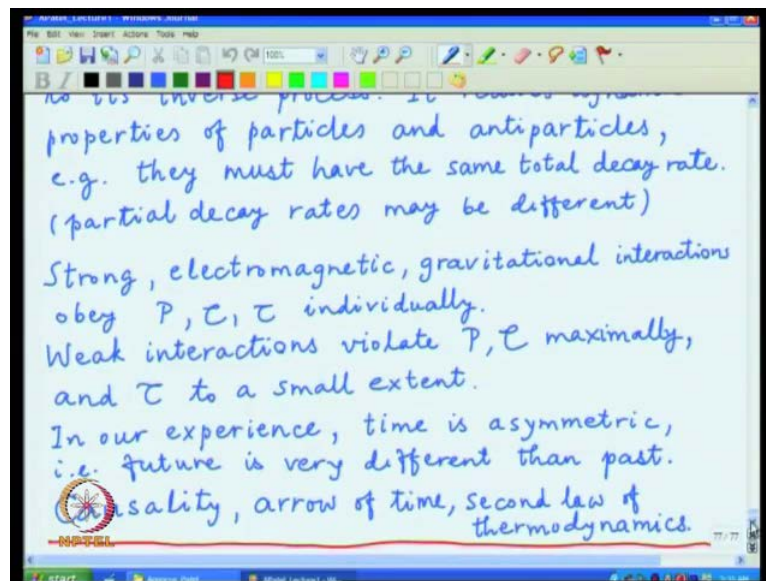 APatel_Lecture1 - Windows Journal
File Edit View Insert Actions Tools Help
100%
B I
to its inverse process. It relates
properties of particles and antiparticles,
e.g. they must have the same total decay rate.
(partial decay rates may be different)
Strong, electromagnetic, gravitational interactions
obey P, C, T individually.
Weak interactions violate P, C maximally,
and T to a small extent.
In our experience, time is asymmetric,
i.e. future is very different than past.
Causality, arrow of time, second law of
thermodynamics.
NPTEL
77 / 77
start